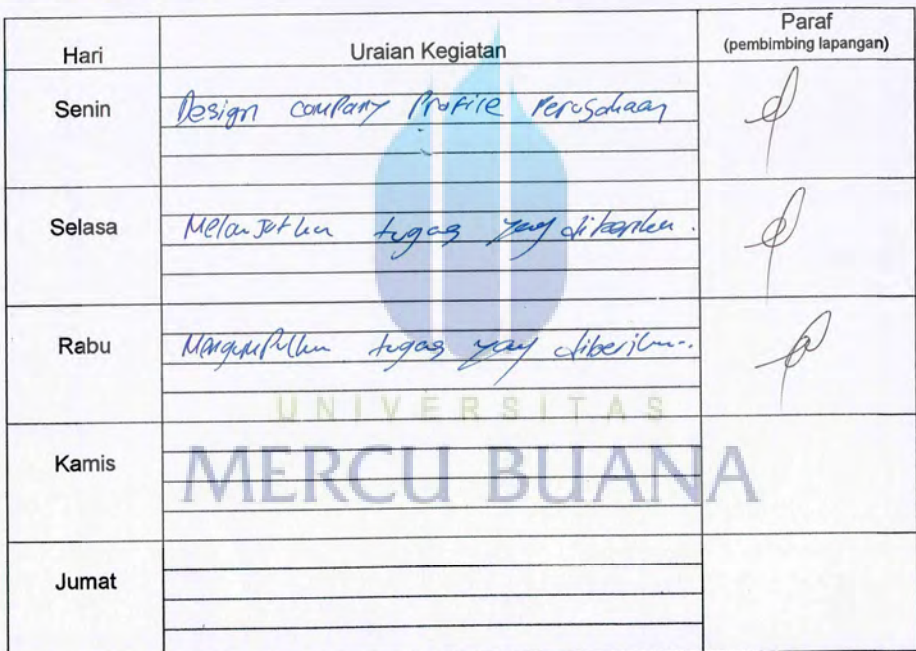 Hari Uraian Kegiatan Paraf
(pembimbing lapangan)
Senin Design company Profile Perusahaan
Selasa Melanjutkan tugas yang diberikan.
Rabu Mengumpulkan tugas yang diberikan..
UNIVERSITAS
Kamis
MERCU BUANA
Jumat